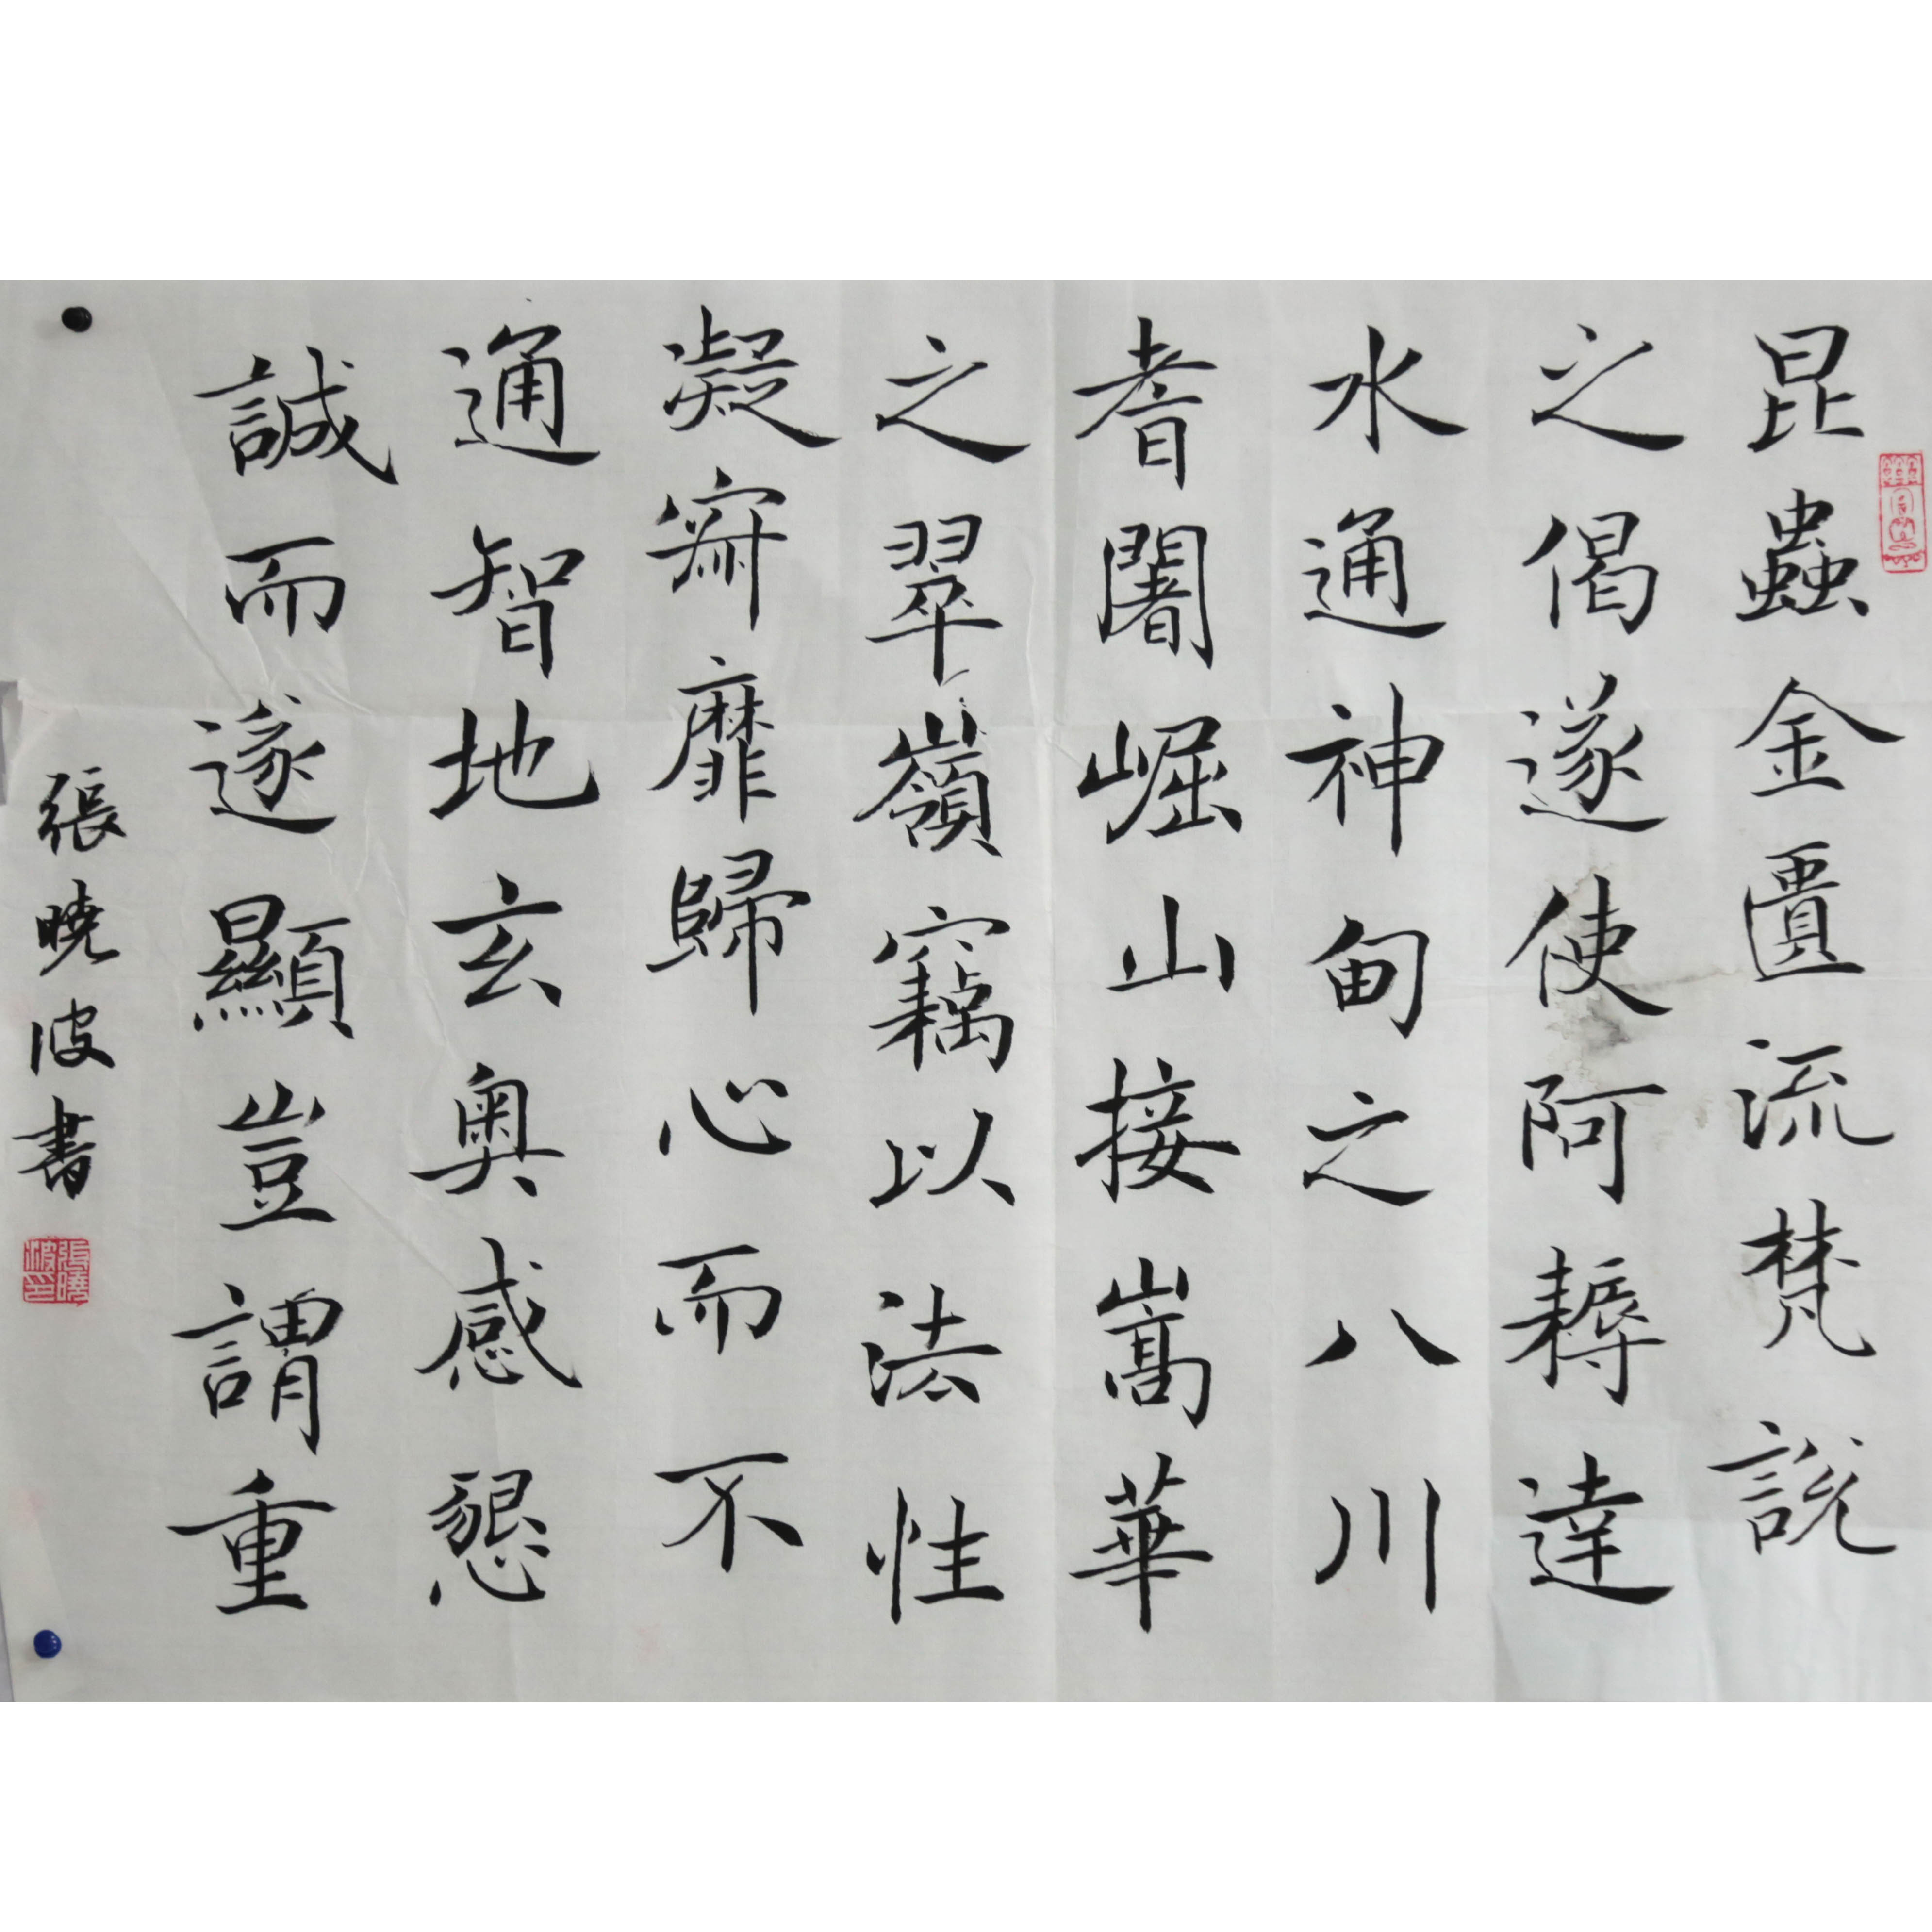 昆蟲金匱流梵說
之偈遂使阿耨達
水通神甸之八川
耆闍崛山接嵩華
之翠嶺竊以法性
凝寂靡歸心而不
通智地玄奧感懇
誠而遂顯豈謂重
張曉波書
張曉波印